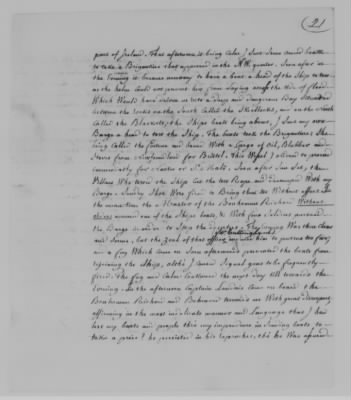 (21
part of Ireland. that afternoon it being Calm I sent some armed boats
to take a Brigantine that appeared in the N.W. quarter. Soon after in
the Evening it became necessary to have a boat a head of the Ship to tow
as the helm could not prevent her from laying across the tide of flood
Which Would have driven us into a deep and dangerous Bay Situated
between the rocks on the South Called the Skallocks, and on the North
Called the Blaskets; the Ships boats being absent, I Sent my own
Barge a head to tow the Ship. The boats took the Brigantine, She
being Called the Fortune and bound With a Cargo of Oil, Blubber and
Staves from Newfoundland for Bristol. this Vessel I ordered to proceed
immediately for Nantes or St. Malo. Soon after Sun Set, the
Villains Who towed the Ship Cut the tow Rope and decamped With my
Barge. Sundry Shot Were fired to Bring them too Without effect in
the mean time the Master of the Bonhomme Richard Without
orders manned one of the Ships boats, & With four Soldiers pursued
the Barge in order to Stop the deserters. the Evening Was then Clear
and Serene, but the Zeal of that officer Mr. Cutting Lunt induced him to pursue too far;
and a fog Which Came on Soon afterwards prevented the boats from
rejoining the Ship, altho' I caused Signal guns to be frequently
fired. the fog and Calm Continued the next day till towards the
Evening. In the afternoon Captain Landais Came on board the
Bonhomme Richard and Behaved towards me With great disrespect,
affirming in the most indelicate manner and Language that I had
lost my boats and people thro' my imprudence in Sending boats to
take a prize! he persisted in his reproaches, tho' he Was assured